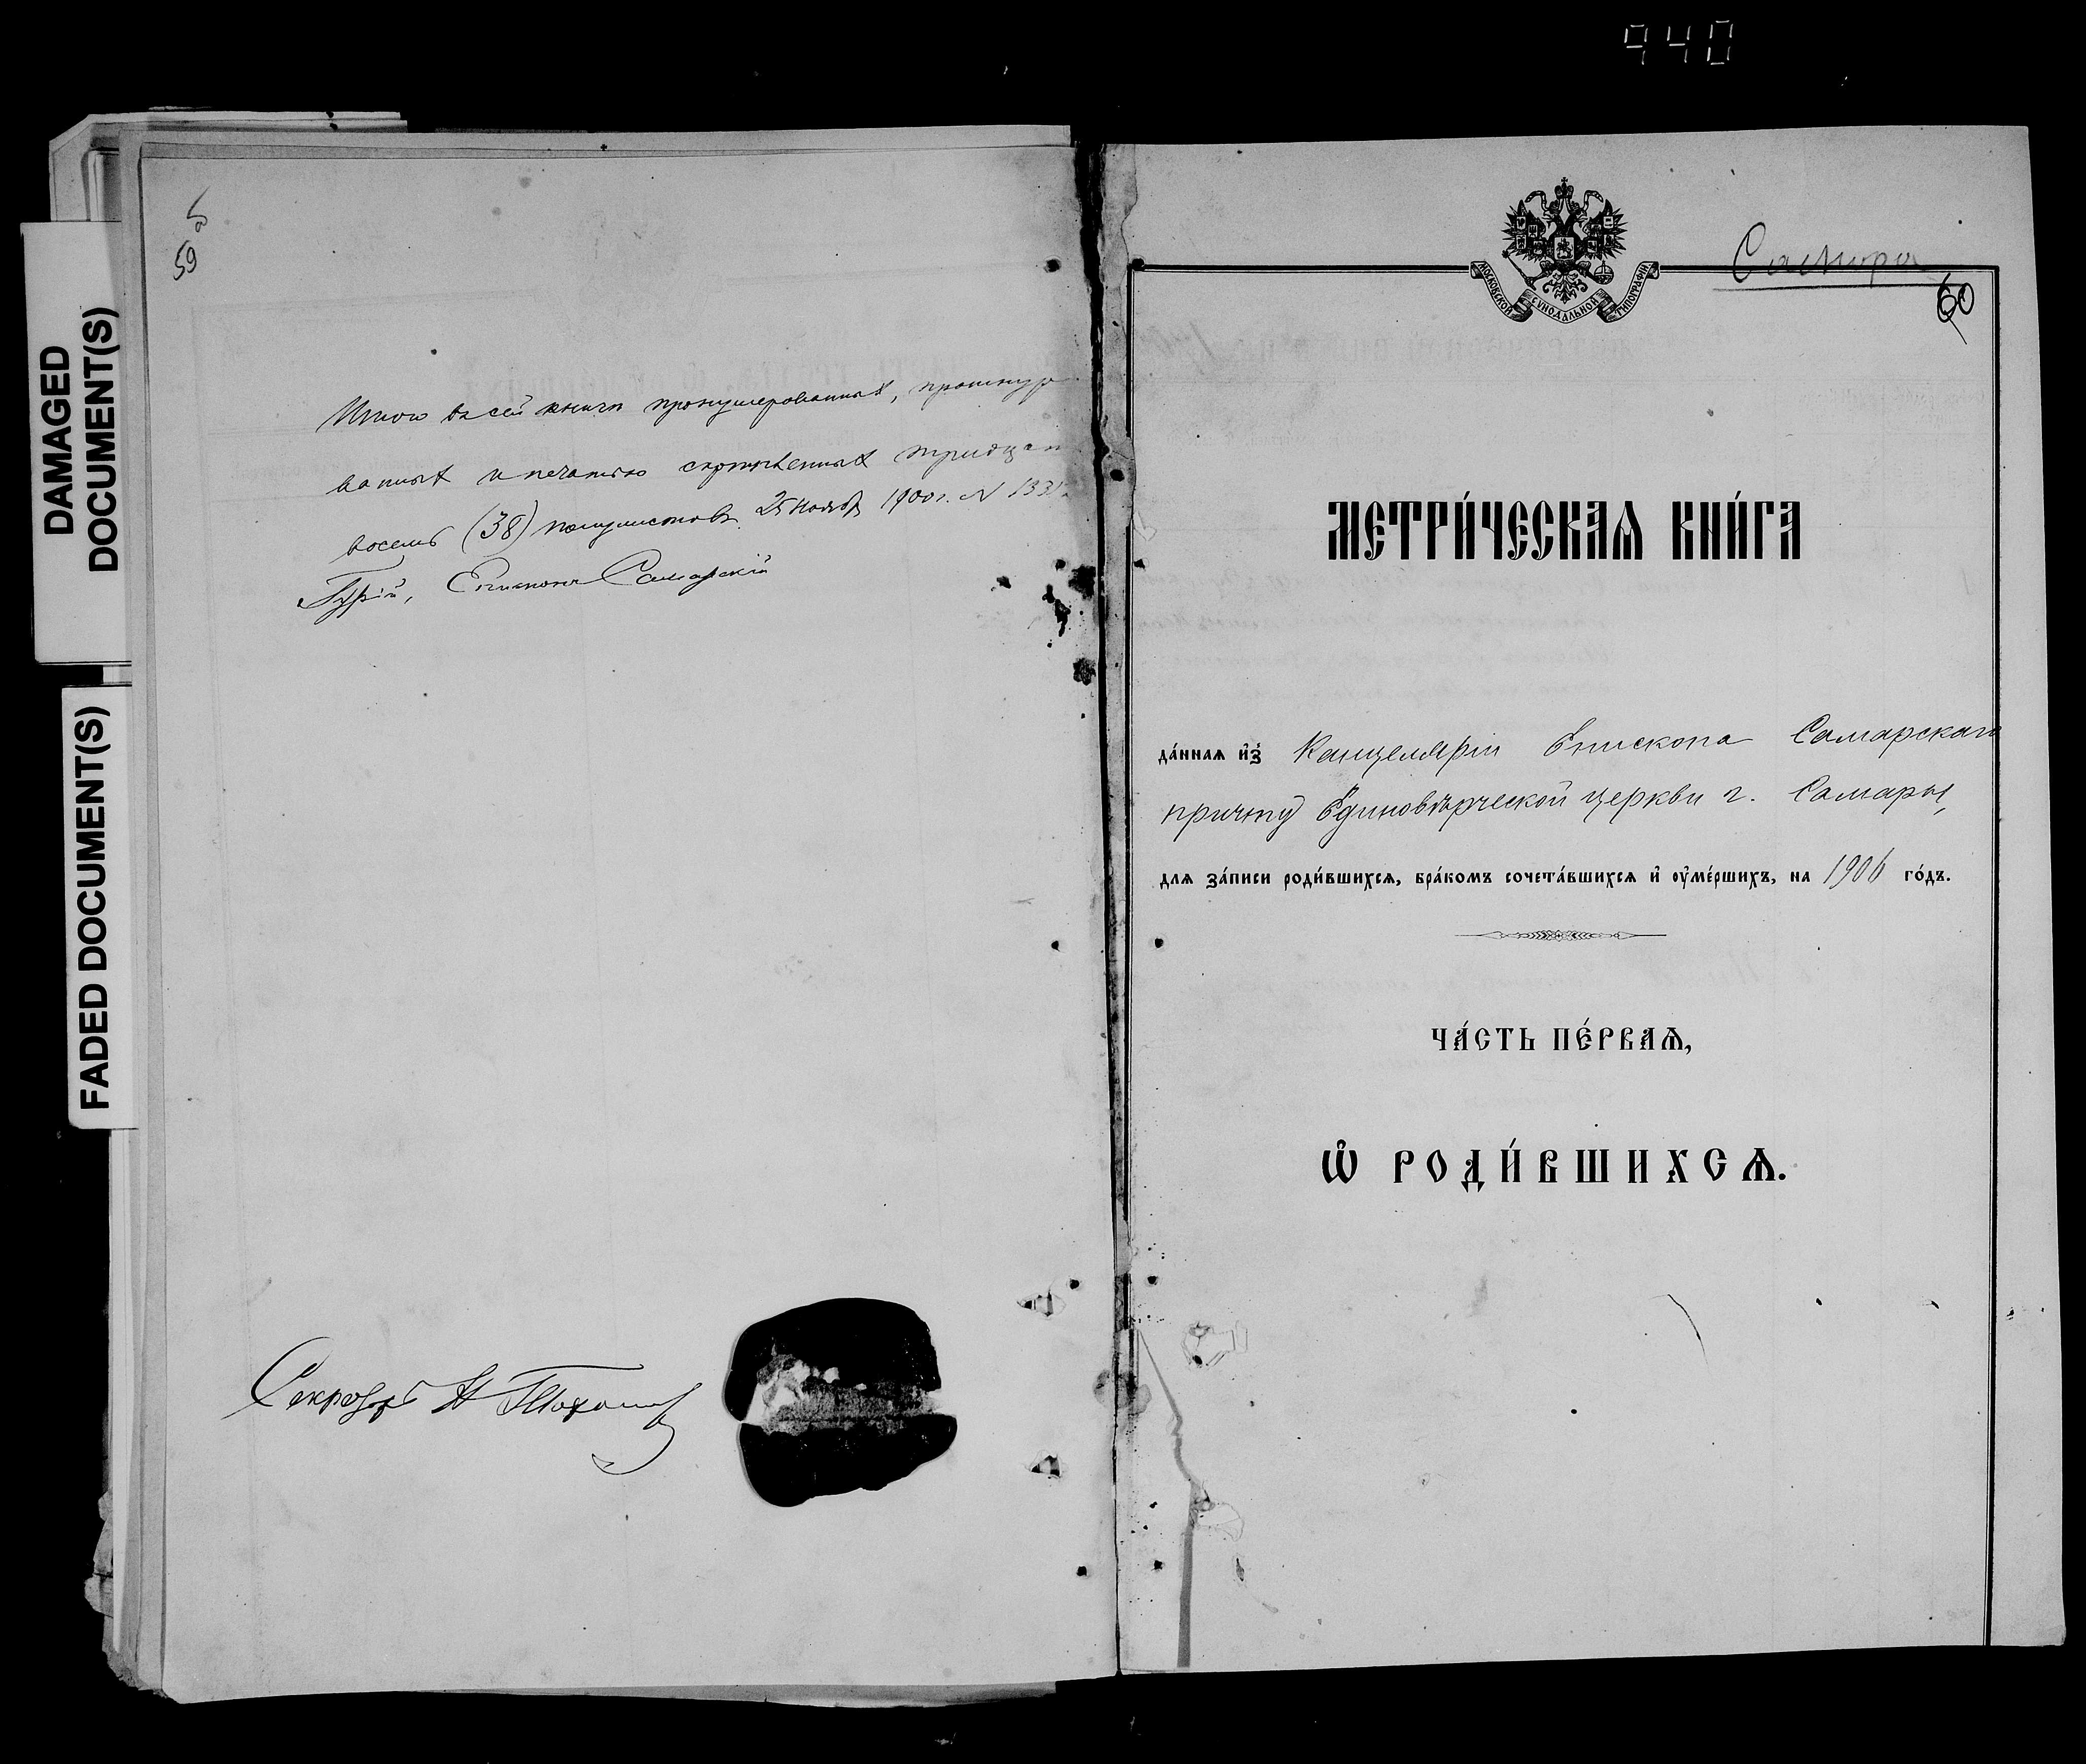 940
DAMAGED
DOCUMENT(S)
FADED DOCUMENT(S)
59
Итого въ сей книгѣ пронумерованныхъ, прошнуро
ванныхъ и печатью скрѣпленныхъ тридцать
восемь (38) полулистовъ. 25 Ноября 1900 г. №
Гурій, Епископъ Самарскій
Секретарь
МОСКОВСКОЙ СѴНОДАЛЬНОЙ ТИПОГРАФІИ
Самара
60
МЕТРИ́ЧЕСКАѦ КНИ́ГА
да́ннаѧ и҆з̾ Канцеляріи Епископа Самарскаго
причту Единовѣрческой церкви г. Самары,
длѧ за́писи роди́вшихсѧ, бра́комъ сочета́вшихсѧ и҆ ᲂу҆ме́ршихъ, на 1906 го́дъ.
ЧА́СТЬ ПЕ́РВАѦ,
Ѽ РОДИ́ВШИХСѦ.